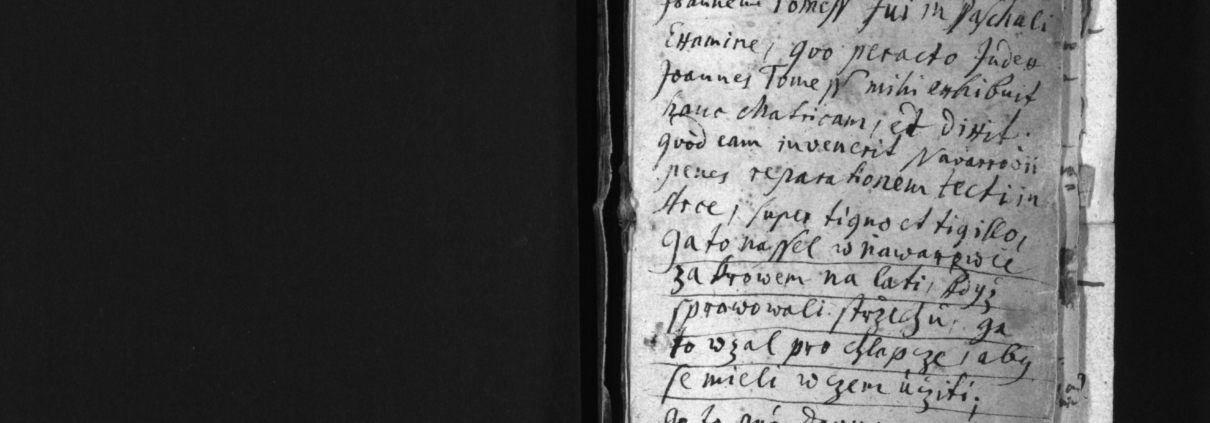 Joannem Tomess fui in Paschali
Examine, quo peracto Judex
Joannes Tomess mihi exhibuit
hanc Matricam, et dixit.
quòd eam invenerit Navarrovii
penes reparationem tecti in
Arce, super tigno et tigillo,
ga to nassel w nawarowie
za krowem na lati, kdyz
sprawowali strzechu, ga
to wzal pro chlapcze, aby
se mieli w czem ucziti;
ga to